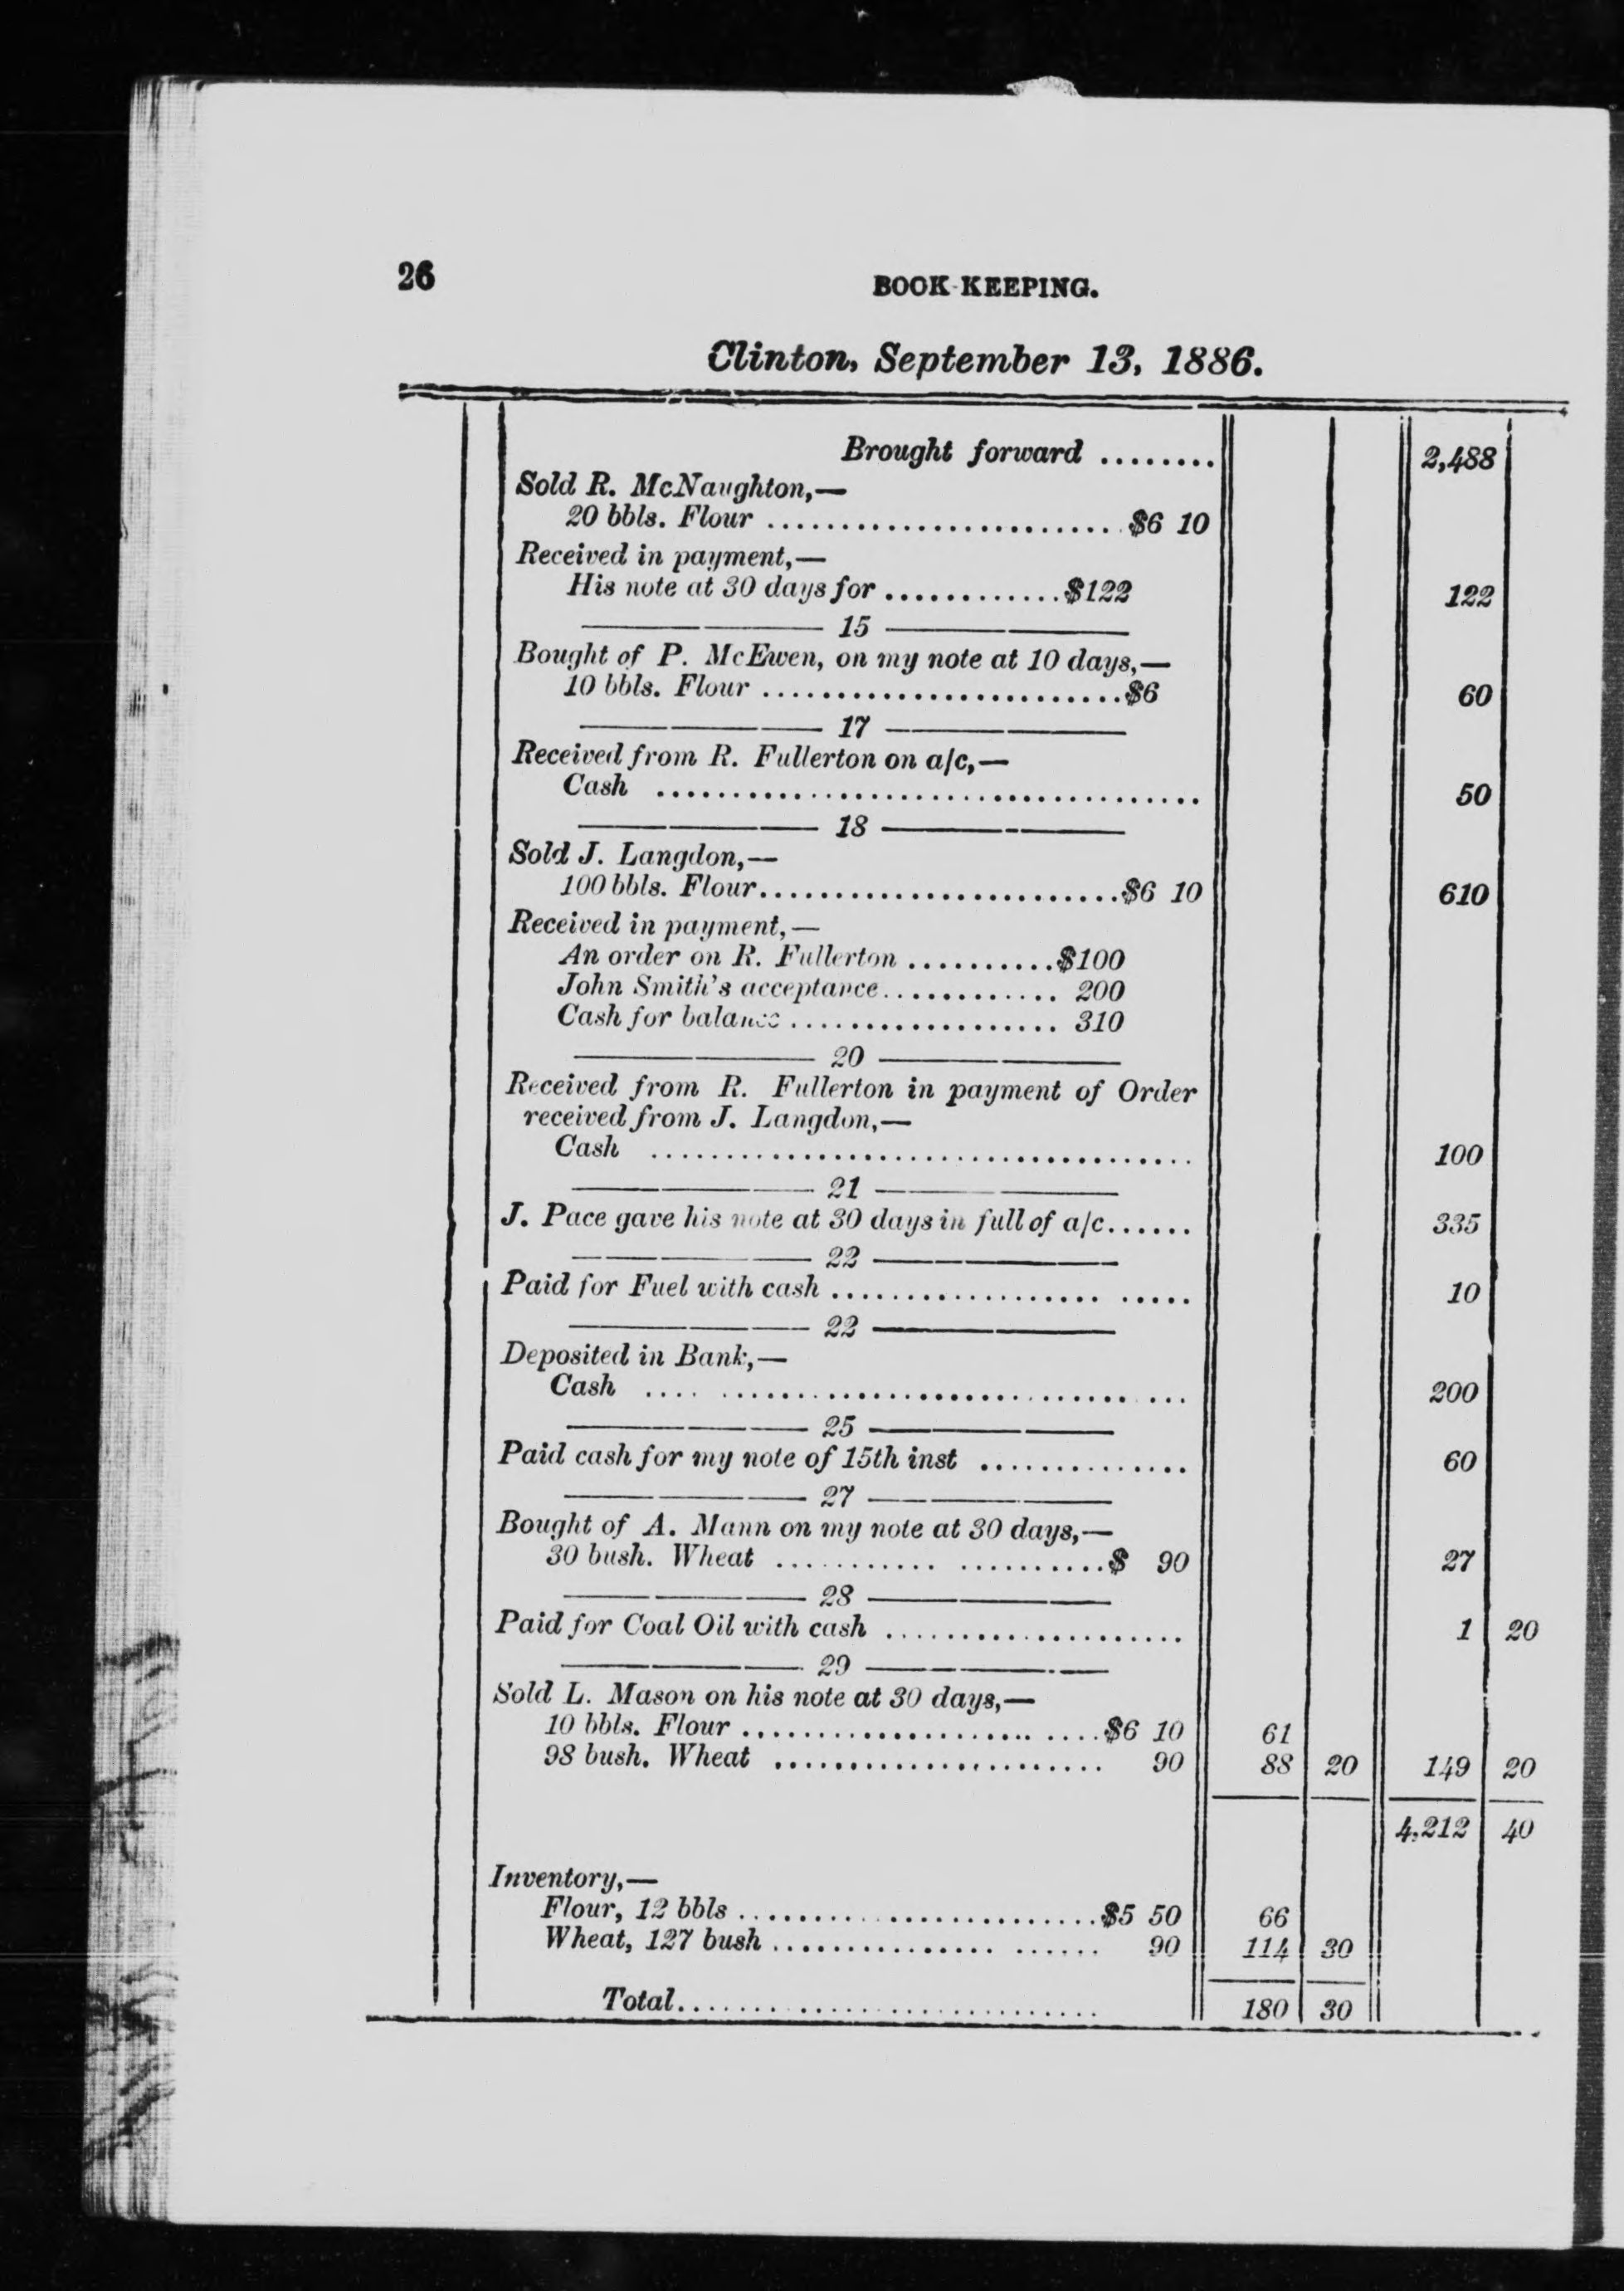 26
BOOK-KEEPING.
Clinton, September 13, 1886.
Brought forward ........ 2,488
Sold R. McNaughton,—
20 bbls. Flour ........................ $6 10
Received in payment,—
His note at 30 days for ............ $122 122
15
Bought of P. McEwen, on my note at 10 days,—
10 bbls. Flour ........................ $6 60
17
Received from R. Fullerton on a/c,—
Cash .................................... 50
18
Sold J. Langdon,—
100 bbls. Flour ........................ $6 10 610
Received in payment,—
An order on R. Fullerton .......... $100
John Smith's acceptance ............ 200
Cash for balance .................. 310
20
Received from R. Fullerton in payment of Order
received from J. Langdon,—
Cash .................................... 100
21
J. Pace gave his note at 30 days in full of a/c...... 335
22
Paid for Fuel with cash ........................ 10
22
Deposited in Bank,—
Cash .................................... 200
25
Paid cash for my note of 15th inst .............. 60
27
Bought of A. Mann on my note at 30 days,—
30 bush. Wheat ..................... $ 90 27
28
Paid for Coal Oil with cash .................... 1 20
29
Sold L. Mason on his note at 30 days,—
10 bbls. Flour ........................ $6 10 61
98 bush. Wheat ...................... 90 88 20 149 20
4,212 40
Inventory,—
Flour, 12 bbls ........................ $5 50 66
Wheat, 127 bush ..................... 90 114 30
Total............................ 180 30